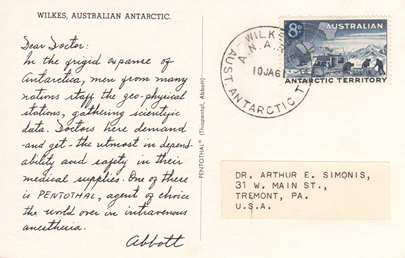 WILKES, AUSTRALIAN ANTARCTIC.
Dear Doctor:
In the frigid expanse of
Antarctica, men from many
nations staff the geo-physical
stations, gathering scientific
data. Doctors here demand
-and get- the utmost in depend-
ability and safety in their
medical supplies. One of these
is PENTOTHAL, agent of choice
the world over in intravenous
anesthesia.
Abbott
PENTOTHAL® (Thiopental, Abbott)
WILKES
A.N.A.R.
10JA6
AUST ANTARCTIC T
8D
AUSTRALIAN
ANTARCTIC TERRITORY
DR. ARTHUR E. SIMONIS,
31 W. MAIN ST.,
TREMONT, PA.
U.S.A.